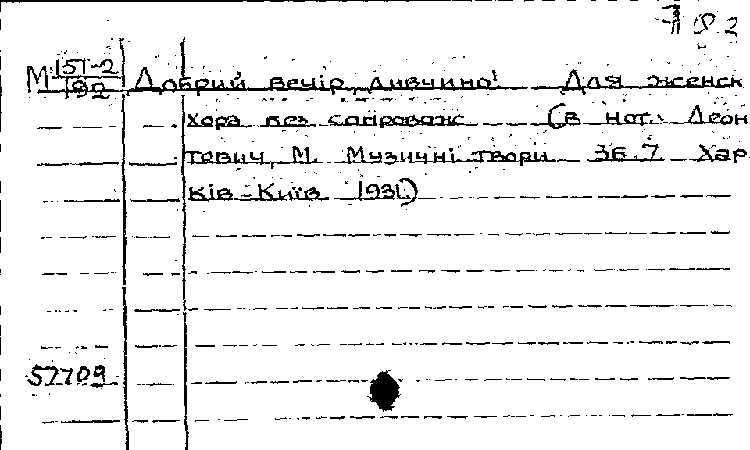 782
М 15Т-2/192 Добрий вечір, дивчино! Для женск
хора без сопровож (В нот.: Леон
тович, М. Музичні твори Зб.7 Хар
ків-Київ 1931.)
57709